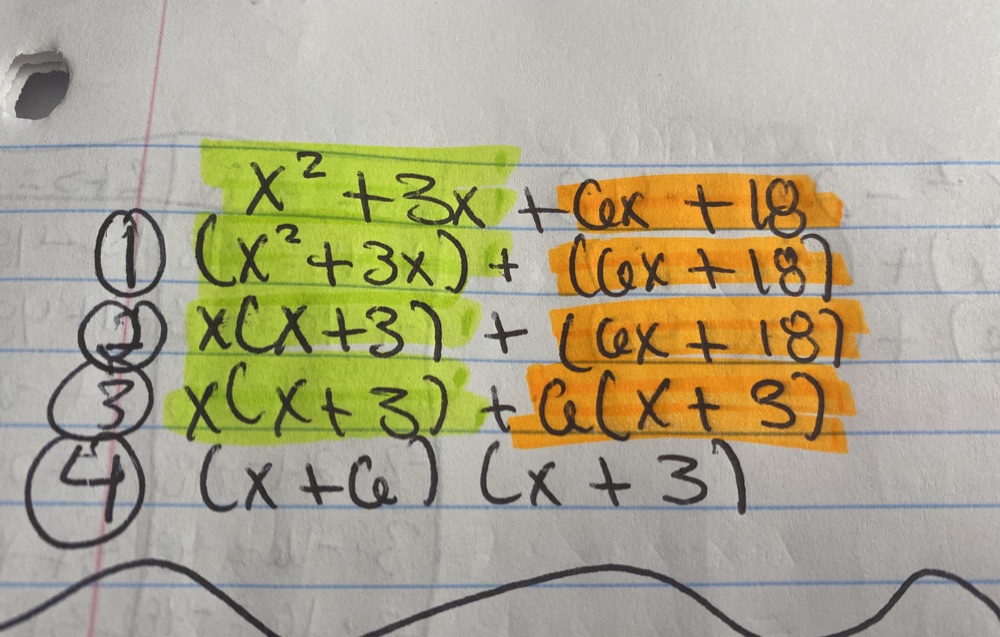 x² + 3x + 6x + 18
① (x² + 3x) + (6x + 18)
② x(x + 3) + (6x + 18)
③ x(x + 3) + 6(x + 3)
④ (x + 6) (x + 3)